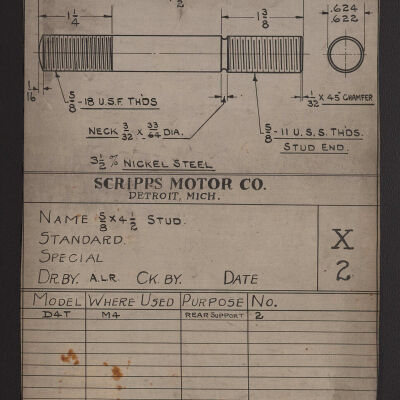 1/2
1 1/4
1 3/8
.624
.622
1/16
5/8 - 18 U.S.F. THDS
1/32 X 45° CHAMFER
NECK 3/32 X 33/64 DIA.
5/8 - 11 U.S.S. THDS.
STUD END.
3 1/2 % NICKEL STEEL
SCRIPPS MOTOR CO.
DETROIT, MICH.
NAME 5/8 X 4 1/2 STUD.
STANDARD.
SPECIAL
DR.BY. A.L.R. CK.BY. DATE
X
2
MODEL WHERE USED PURPOSE NO.
D4T M4 REAR SUPPORT 2